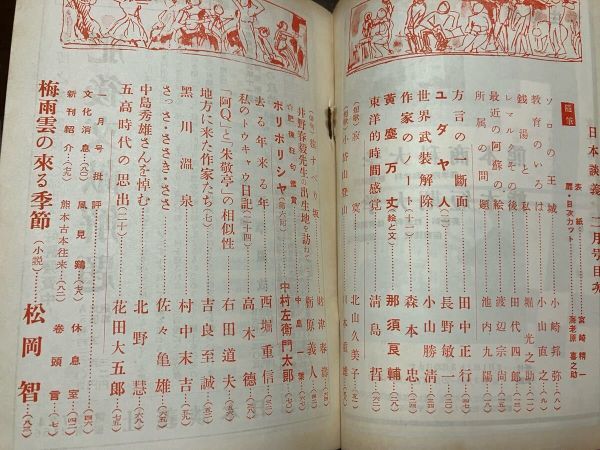 日本談義 二月号目次
表紙………宮崎精一
扉・目次カット………海老原喜之助
随筆
ソロの王城………小崎邦弥
教育のいろは………小山直之
銭湯と私………堀光之助
レマルその後………田代四郎
最近の阿蘇の絵………渡辺宗尚
所属の問題………池内九陽
方言の一断面………田中正行
ユダヤ人………長野敏一
世界武装解除………小山勝清
作家のノート(十一)………森本忠
黄塵万丈(絵と文)………那須良輔
東洋的時間感覚………清島哲
寂寞………北山久美子
井野春毅先生の出生地を訪ねて………新原義人
肥後狂句鑑賞………中島一葉
ホリホリシヤ(第六回)………中村左衛門太郎
去る年来る年………西堀重信
私のトウキャウ日記(二十四)………高木徳
「阿Q」と「朱敬亭」の相似性………右田道夫
地方に来た作家たち(七)………吉良至誠
黒川温泉………村中末吉
さっさ・ささき・ささ………佐々亀雄
中島秀雄さんを悼む………北野慧
五高時代の思出(二十)………花田大五郎
一月号批評………(四六)
文化消息………
風見鶏………
休息室………
新刊紹介………
熊本古本往来………
巻頭言………
梅雨雲の來る季節(小説)………松岡智